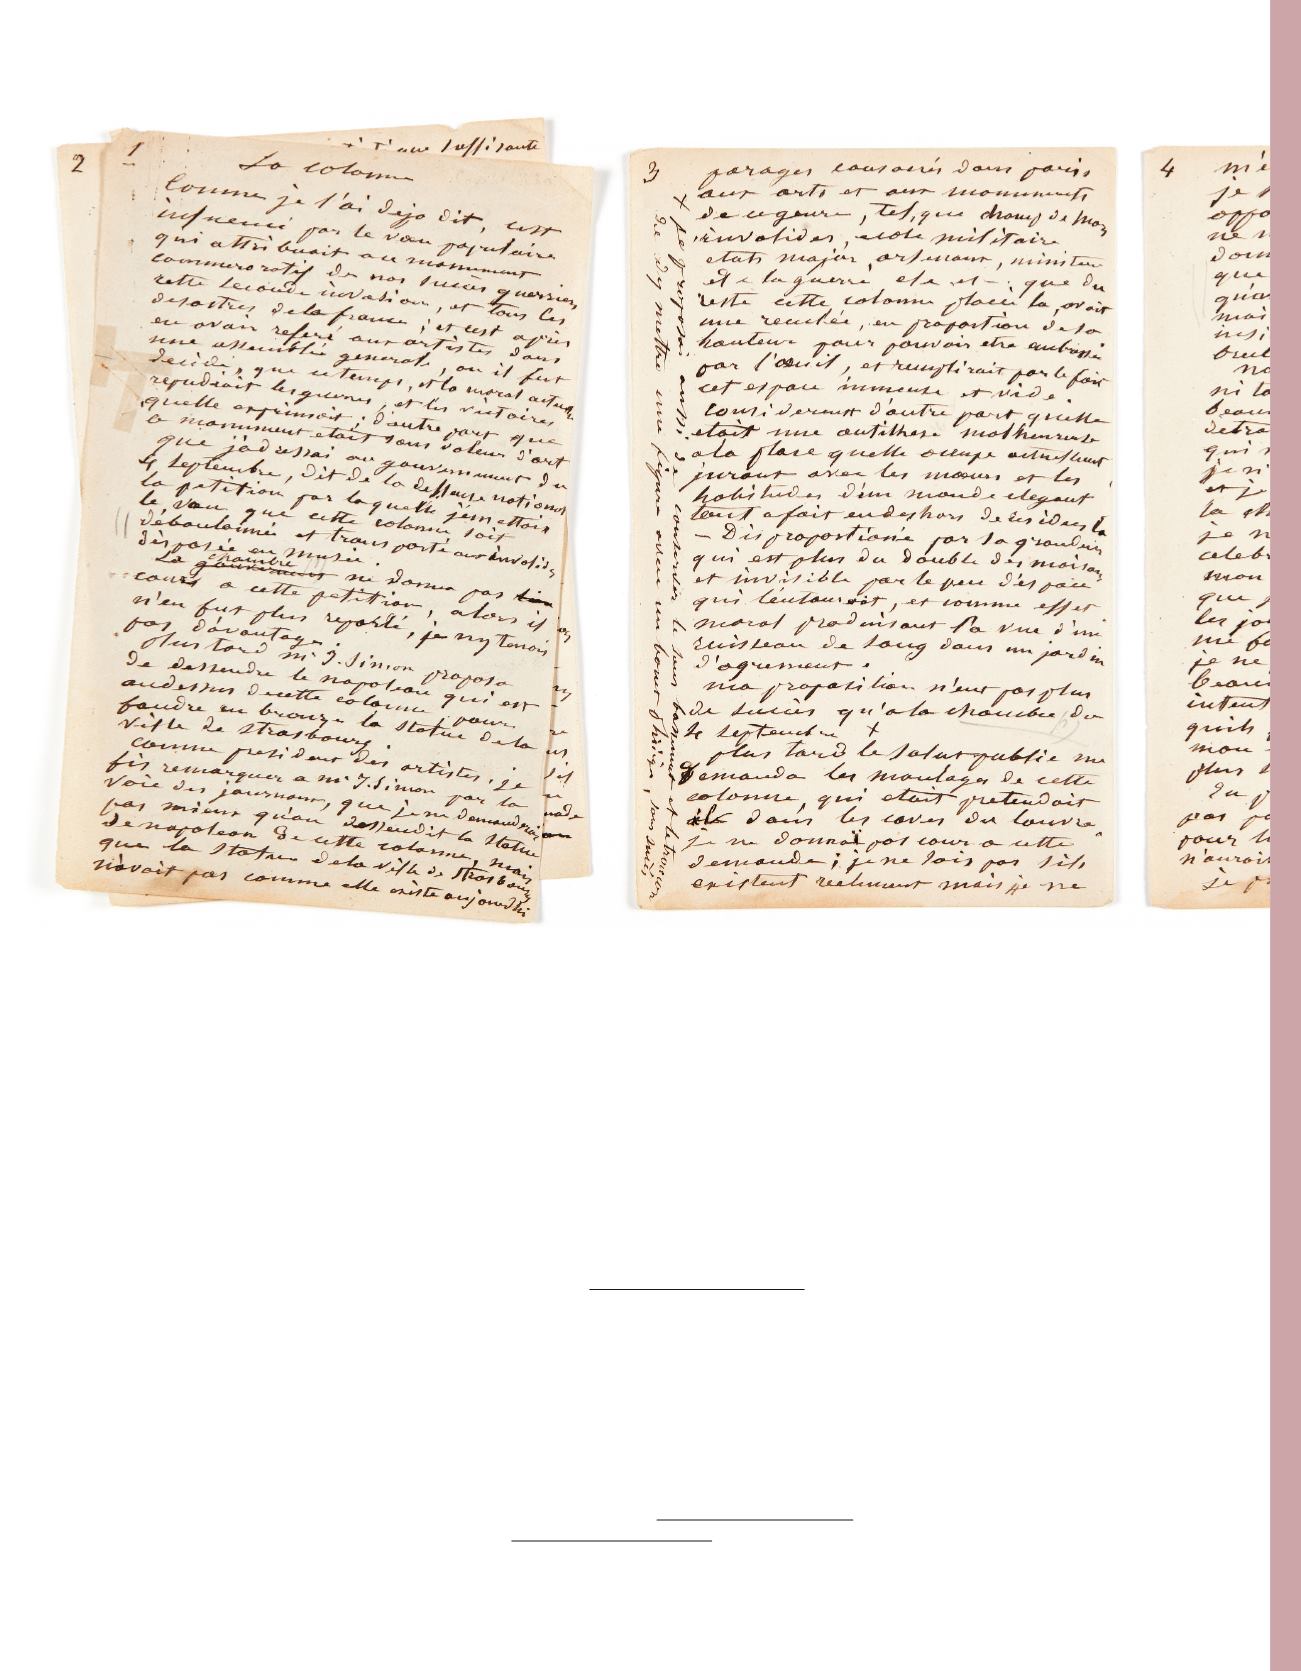 2
1
suffisante
La colonne
Comme je l'ai dejo dit, cest
influencé par le vœu populaire
qui attribuait au monument
commemoratif de nos succès guerriers
cette seconde invasion, et tous les
desastres de la france ; et cest après
en avoir referé aux artistes dans
une assemblée generale, ou il fut
decidé, que ce temps, et la moral actuelle
repudiait les guerres, et les victoires
quelle exprimait ; d'autre part que
ce monument etait sans valeur d'art
que j'adressai au gouvernement du
4 septembre, dit de la deffense nationale
la petition par laquelle j'émettais
le vœu que cette colonne soit
déboulonnée et transportée aux invalides
déposée au musée.
La chambre ne donna pas
cours a cette petition, alors il
n'en fut plus reporté, je n'y tenais
pas davantage.
plus tard mr J. Simon proposa
de dessendre le napoleon qui est
audessus de cette colonne, pour
fondre en bronze la statue de la
ville de strasbourg.
comme president des artistes, je
fis remarquer a mr J. Simon par la
voie des journaux, que je ne demandais
pas mieux qu'on dessendit la statue
de napoleon de cette colonne, mais
que la statue de la ville de strasbourg
n'avait pas comme elle existe aujourdhi
3
parages consacrés dans paris
aux arts et aux monuments
de ce genre, tel, que champ de mars
invalides, ecole militaire
etats major, arsenaux, ministere
de la guerre etc et - ; que du
reste cette colonne placée la, avait
une reculée, en proportion de sa
hauteur pour pouvoir etre embrassée
par l'œuil, et remplirait par le fait
cet espace immense et vide.
Considerant d'autre part quelle
etait une antithese malheureuse
a la place quelle occupe actuellement
jurant avec les mœurs et les
habitudes d'un monde elegant
tout a fait endehors de ces idées la
— Disproportionée par sa grandeur
qui est plus du double des maisons
et invisible par le peu d'espace
qui l'entourait, et comme effet
moral produisant la vue d'un
ruisseau de sang dans un jardin
d'agrement.
ma proposition n'eut pas plus
de succès qu'a la chambre du
4 septembre +
plus tard le salut publie me
demanda les moulages de cette
colonne, qui etait pretendait
il dans les caves du louvre
je ne donnai pas cour a cette
demande ; je ne sais pas sils
existent reelment mais je ne
+ je proposai aussi de conserver le sous bassement et le tronçon
de d'y mettre une figure avec un bonnet phrigien, sans succès
4